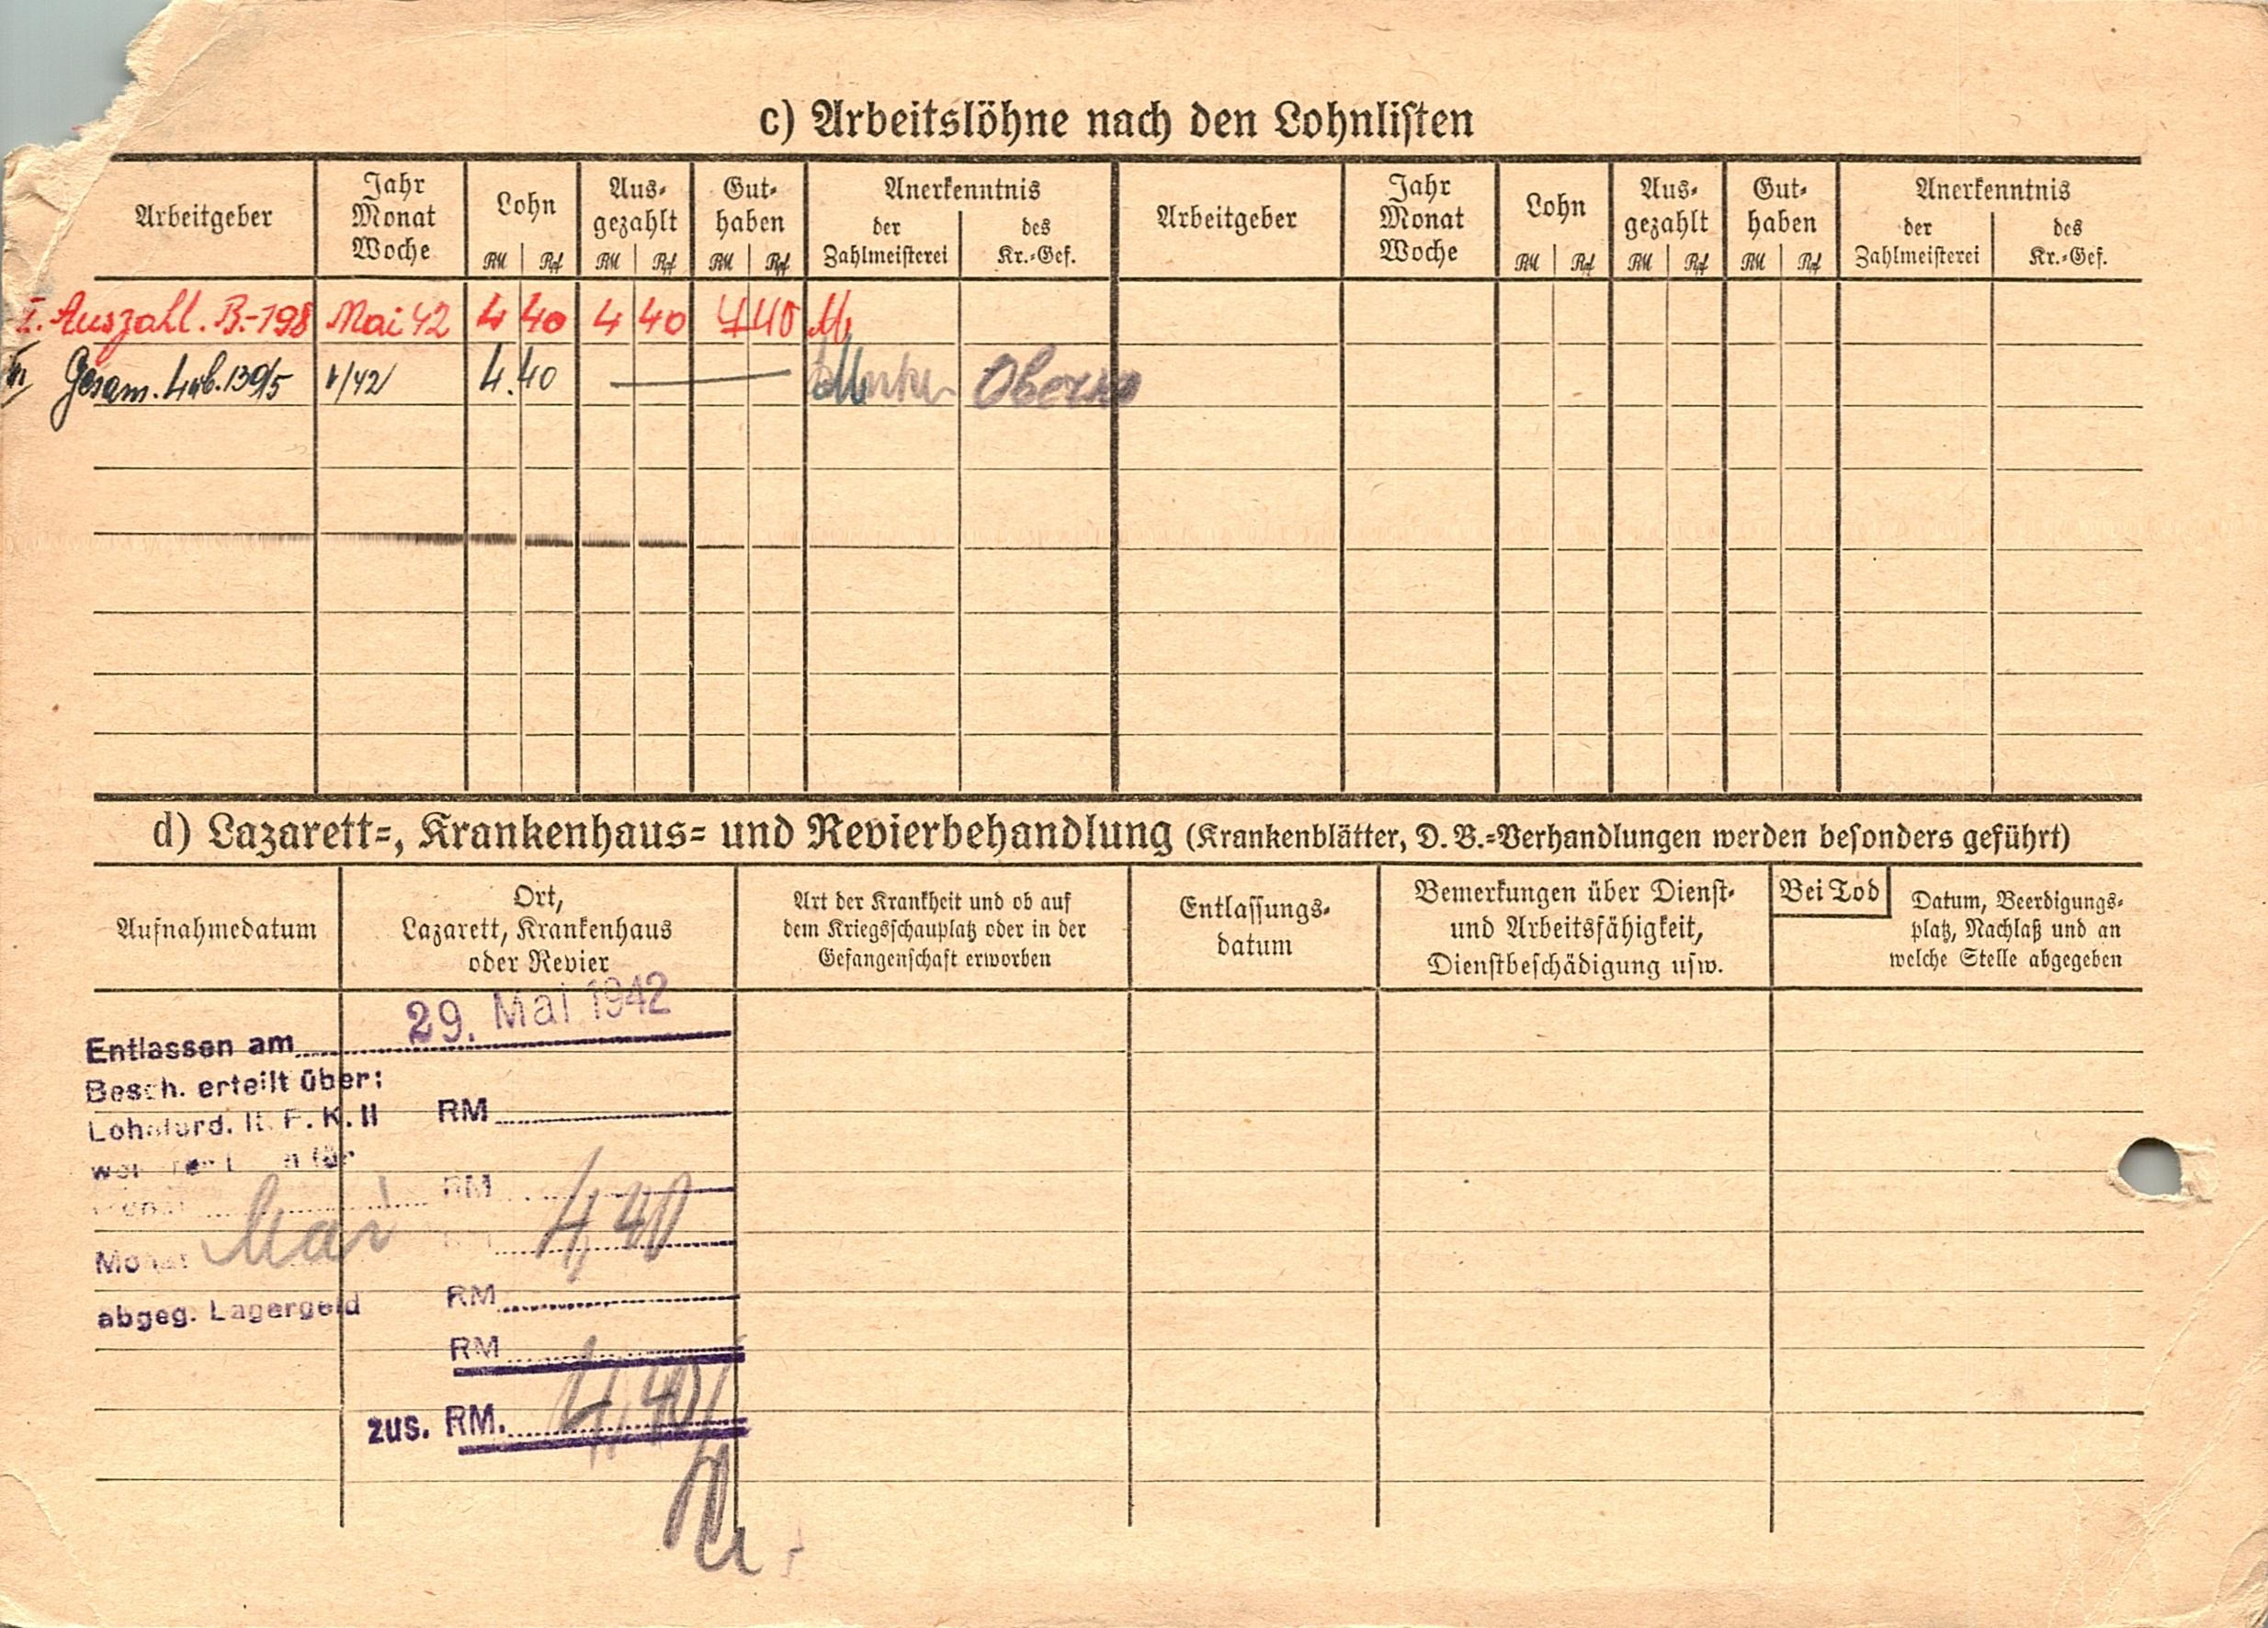 c) Arbeitslöhne nach den Lohnlisten
Arbeitgeber Jahr Monat Woche Lohn RM Rpf Aus- gezahlt RM Rpf Gut- haben RM Rpf Anerkenntnis der Zahlmeisterei des Kr.-Gef. Arbeitgeber Jahr Monat Woche Lohn RM Rpf Aus- gezahlt RM Rpf Gut- haben RM Rpf Anerkenntnis der Zahlmeisterei des Kr.-Gef.
I. Auszahl. B.-198 Mai 42 4 40 4 40 4 40
4.40
d) Lazarett-, Krankenhaus- und Revierbehandlung (Krankenblätter, D. B.-Verhandlungen werden besonders geführt)
Aufnahmedatum
Ort,
Lazarett, Krankenhaus
oder Revier
Art der Krankheit und ob auf
dem Kriegsschauplatz oder in der
Gefangenschaft erworben
Entlassungs-
datum
Bemerkungen über Dienst-
und Arbeitsfähigkeit,
Dienstbeschädigung usw.
Bei Tod
Datum, Beerdigungs-
platz, Nachlaß und an
welche Stelle abgegeben
Entlassen am 29. Mai 1942
Besch. erteilt über:
Lohnford. lt. P. K. II RM
RM
Monat Mai 4,40
abgeg. Lagergeld RM
RM
zus. RM. 4,40